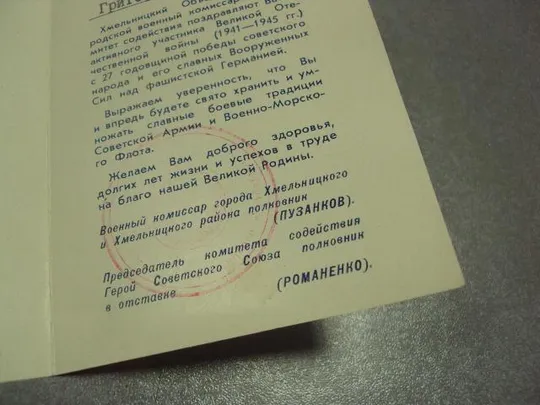 Григо
Хмельницкий Объ
родской военный комиссар
митет содействия поздравляют Ва
активного участника Великой Оте-
чественной войны (1941—1945 гг.)
с 27 годовщиной победы советского
народа и его славных Вооруженных
Сил над фашистской Германией.
Выражаем уверенность, что Вы
и впредь будете свято хранить и ум-
ножать славные боевые традиции
Советской Армии и Военно-Морско-
го Флота.
Желаем Вам доброго здоровья,
долгих лет жизни и успехов в труде
на благо нашей Великой Родины.
Военный комиссар города Хмельницкого
и Хмельницкого района полковник
(ПУЗАНКОВ).
Председатель комитета содействия
Герой Советского Союза полковник
в отставке
(РОМАНЕНКО).